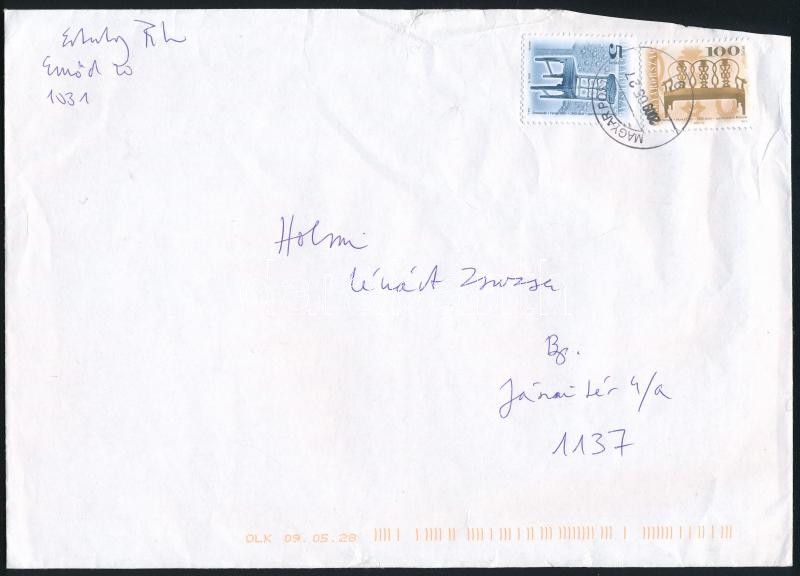 Emőd u
1031
5
100
MAGYAR POSTA
2009 05. 27
Holmi
Lénárt Zsuzsa
Bp.
Jászai tér 4/a
1137
OLK 09.05.28